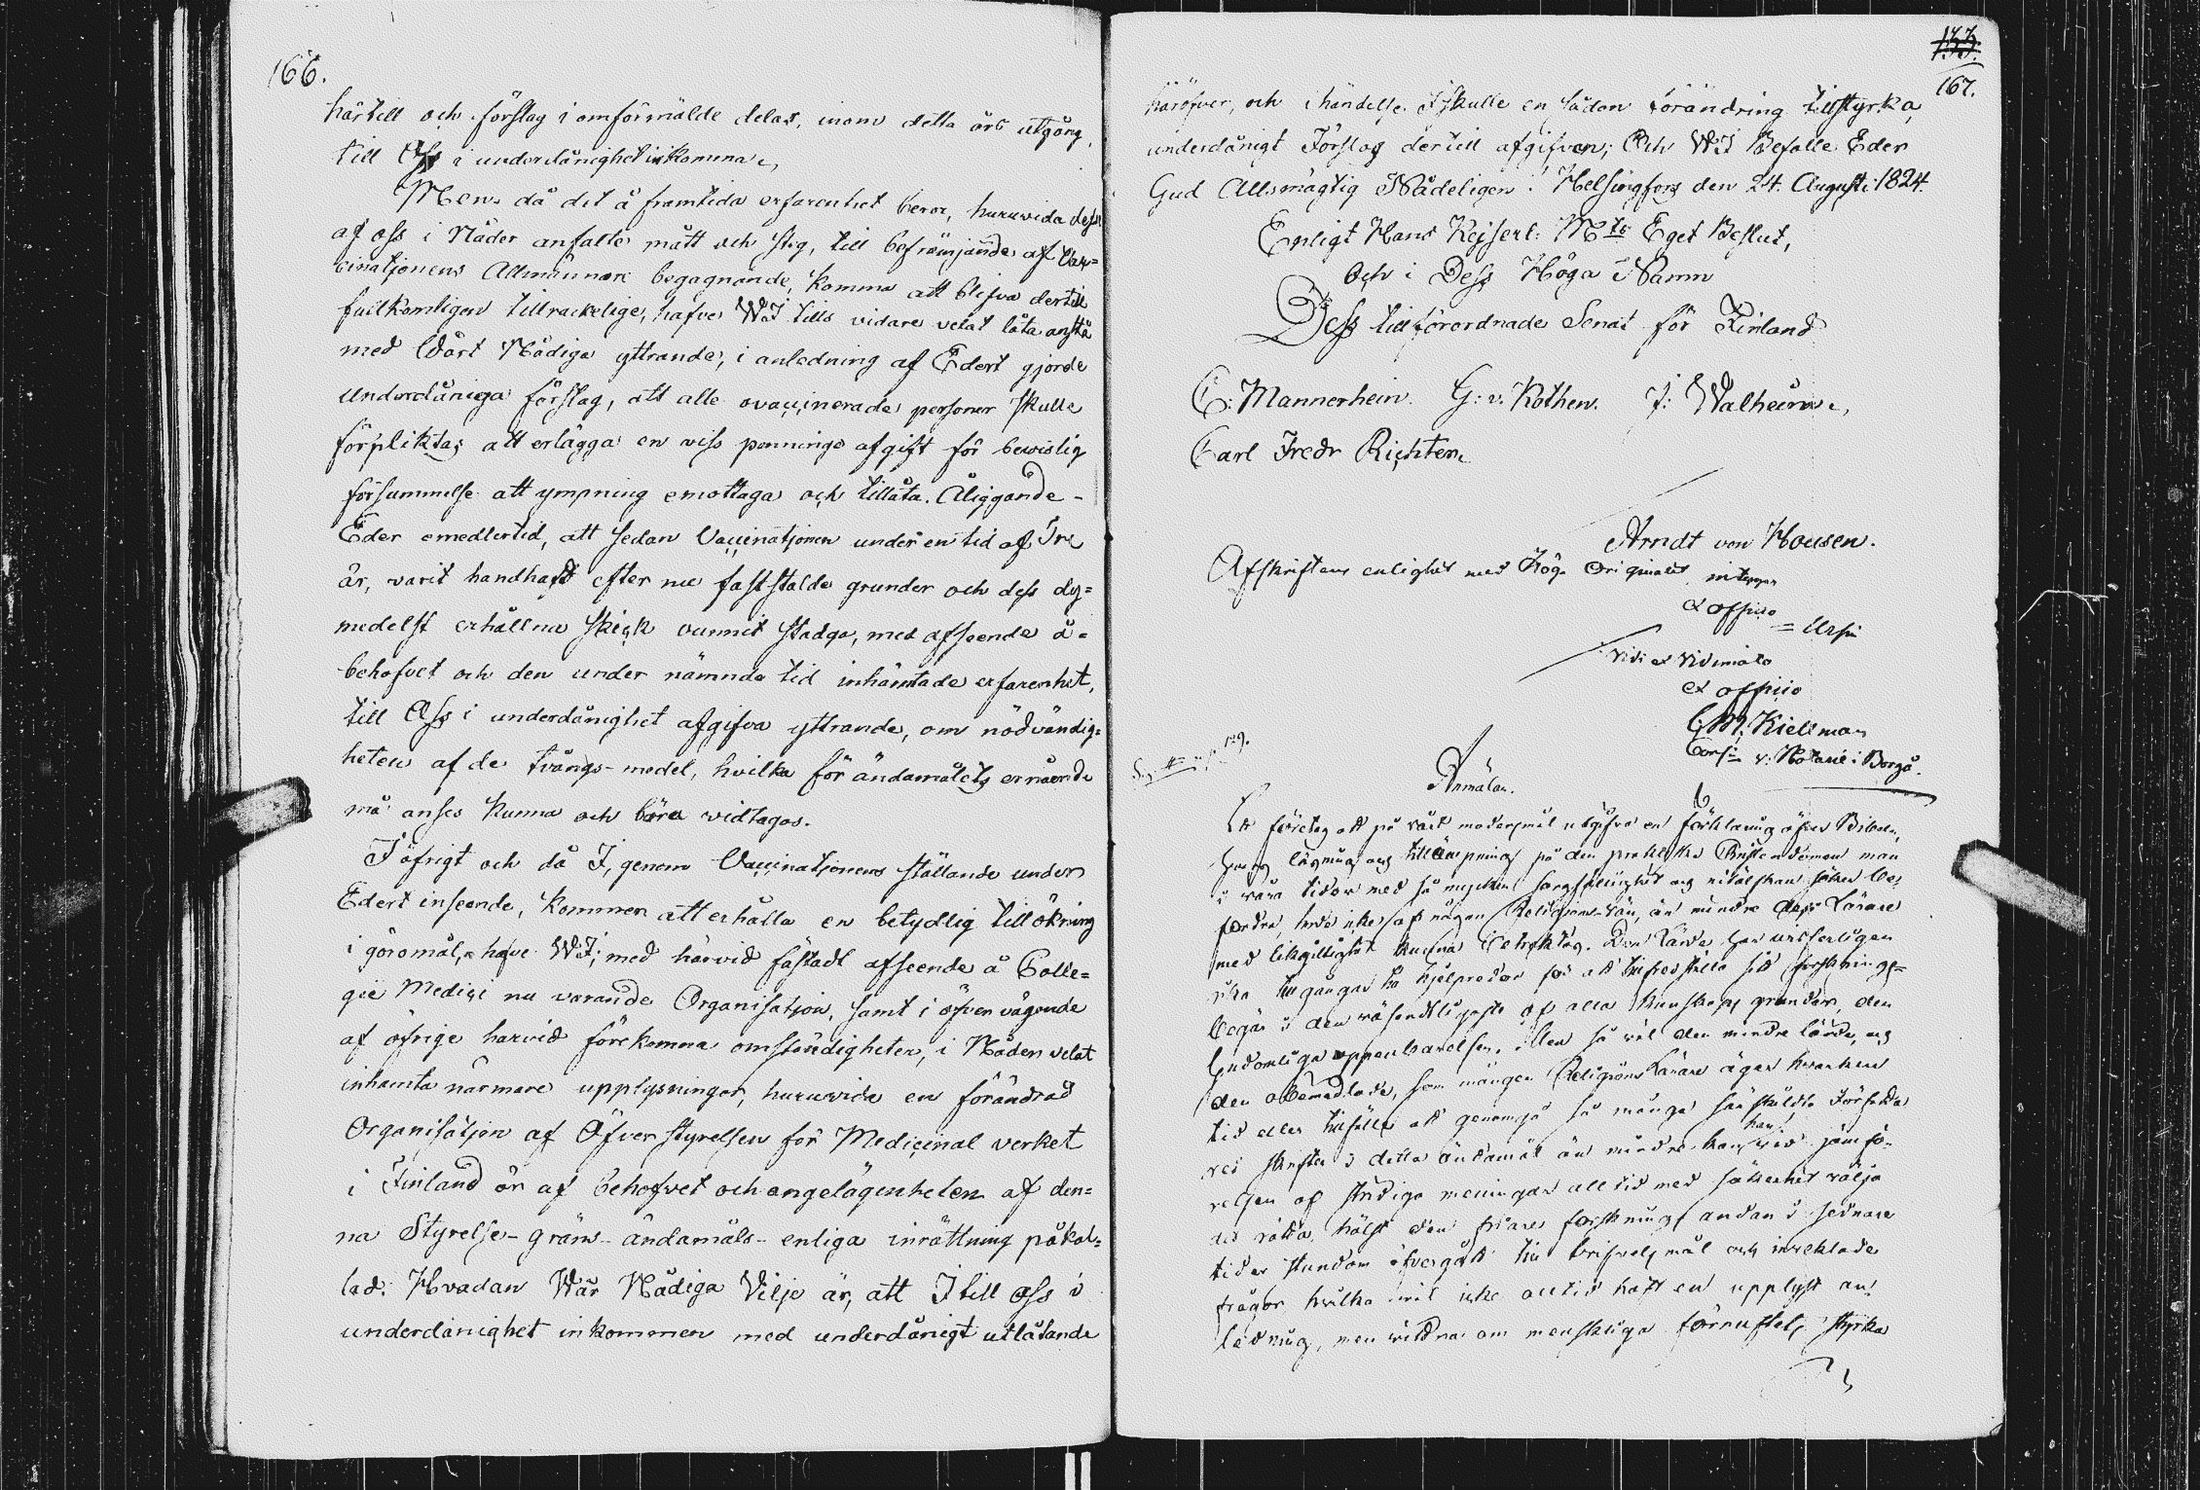 166.
härtill och förslag i omförmälde delar, inom detta års utgång,
till Oss i underdånighet inkomma.
Men då det å framtida erfarenhet beror, huruvida desse
af oss i Nåder anfalte mått och steg, till befrämjande af Vac=
cinatjonens Allmännare begagnande, komma att blifva dertill
fullkomligen tillräckelige, hafve Wi tills vidare velat låta anstå
med Vårt Nådiga yttrande, i anledning af Edert gjorde
underdåniga förslag, att alle ovaccinerade personer skulle
förpliktas att erlägga en viss pennings afgift för bevislig
försummelse att ympning emottaga och tillåta. Åliggande
Eder emedlertid, att sedan Vaccinatjonen under en tid af Tre
år, varit handhafd efter nu faststälde grunder och dess dy=
medelst erhållna skick vunnit stadga, med afseende å
behofvet och den under nämnde tid inhämtade erfarenhet,
till Oss i underdånighet afgifva yttrande, om nödvändig=
heten af de tvångs-medel, hvilka för ändamålets ernående
må anses kunna och böra widtagas.
I öfrigt och då I, genom Vaccinatjonens ställande under
Edert inseende, kommer att erhålla en betydlig tillökning
i göromål, hafve Wi; med härvid fästadt afseende å Colle=
gii Medici nu varande Organisatjon, samt i öfvervägende
af öfrige härvid förekomna omständigheter, i Nåder velat
inhämta närmare upplysningar, huruvida en förändrad
Organisatjon af Öfver styrelsen för Medicinal verket
i Finland är af behofvet och angelägenheten af den=
na Styrelse-gräns-ändamåls-enliga inrättning påkal=
lad. Hvadan Wår Nådiga Vilje är, att I till Oss i
underdånighet inkommen med underdånigt utlåtande
133.
167.
häröfver, och ihändelse I skulle en sådan förändring tillstyrka,
underdånigt Förslag dertill afgifven; Och Wi Befalle Eder
Gud Allsmägtig Nådeligen! Helsingfors den 24. Augusti 1824.
Enligt Hans Kejserl: Mts Eget Beslut,
Och i Dess Höga Namn
Dess tillförordnade Senat för Finland
C: Mannerheim. G: v. Kothen. J: Walheim,
Carl Fredr Richter.
Arndt von Housen.
Afskriftens enlighet med Hög. Originalet intygar
ex officio
Vidi et vidimato
ex officio
C. M. Kiellman
Cons: v: Notarie i Borgå.
N:o 9.
Anmälan.
Ett företag att på vårt modersmål utgifva en förklaring öfver Bibeln,
i våra tider med så mycken sorgfällighet
med likgiltighet kunna betraktas. Den Lärde har
begär i den väsendtligaste af alla kunskaps grunder, den
Gudomliga uppenbarelsen. Men så väl den mindre lärde, och
den obemedlade, som mången Religions Lärare äger hvarken
tid eller tillfälle att genomgå så många särskildte Författa=
res skrifter i detta ändamål än mindre kan han wid jämfö=
relsen af stridiga meningar alltid med säkerhet välja
det rätta, hälst den friare forsknings andan i sednare
tider stundom öfvergått till tvifvels mål och invecklade
frågor hvilka icke alltid haft en upplyst an=
ledning, men vittna om menskliga förnuftets styrka